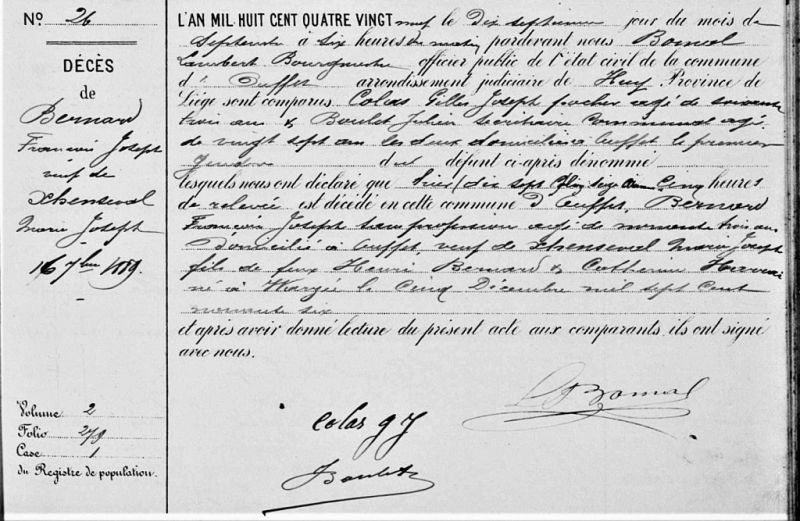 N.º 26
DÉCÈS
de
Bernard
François Joseph
veuf de
Xhenseval
Marie Joseph
16 7bre 1889.
Volume 2
Folio 279
Case 1
du Registre de population.
L'AN MIL HUIT CENT QUATRE VINGT neuf le Dix septième jour du mois de
Septembre à six heures du matin, pardevant nous Bomal
Lambert Bourgmestre officier public de l'état civil de la commune
d' Ouffet arrondissement judiciaire de Huy, Province de
Liège sont comparus Colas Gilles Joseph âgé de soixante
trois ans & Boulet Julien Secrétaire Communal âgé
de vingt sept ans les deux domiciliés à Ouffet le premier
du défunt ci-après dénommé
lesquels nous ont déclaré que hier à cinq heures
de relevée est décédé en cette commune d'Ouffet, Bernard
François Joseph sans profession âgé de nonante trois ans
Domicilié à Ouffet, veuf de Xhenseval Marie Joseph
fils de feux Henri Bernard & Catherine
né à le Cinq Décembre mil sept Cent
nonante six
et après avoir donné lecture du présent acte aux comparants, ils ont signé
avec nous.
L Bomal
Colas g J
Boulet